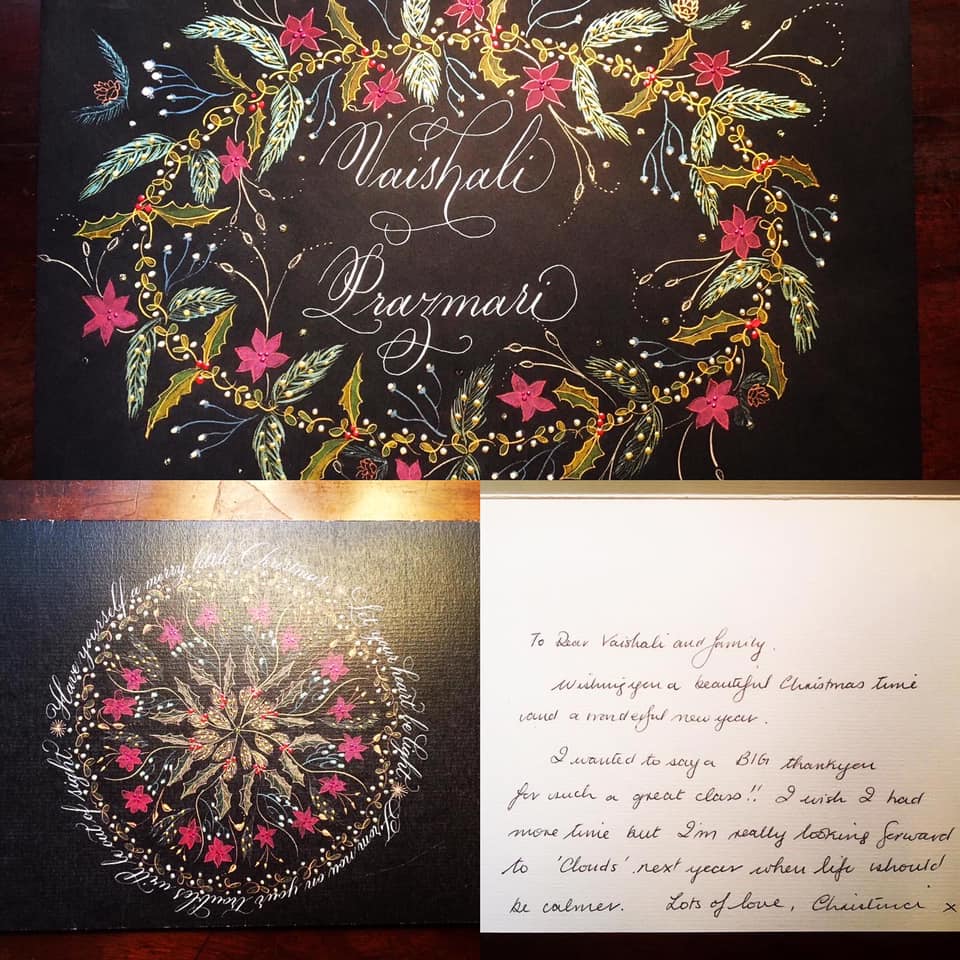 Vaishali
Prazmari
Have yourself a merry little Christmas
Let your heart be light
From now on your troubles will be out of sight
To Dear Vaishali and family.
Wishing you a beautiful Christmas time
and a wonderful new year.
I wanted to say a BIG thankyou
for such a great class!! I wish I had
more time but I'm really looking forward
to 'Clouds' next year when life should
be calmer. Lots of love, Christina x